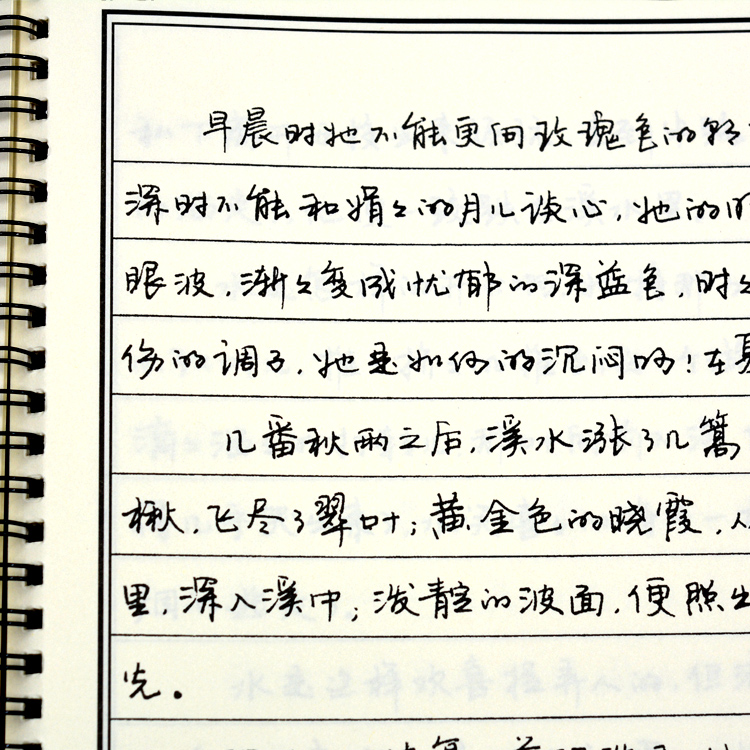 早晨时她不能更向玫瑰色的
深时不能和娟々的月儿谈心,她的
眼波,渐々变成忧郁的深蓝色,时
伤的调子,她是如何的沉闷呀!在夏
几番秋雨之后,溪水涨了几篙
楸,飞尽了翠叶;黄金色的晓霞,从
里,深入溪中;泼靛的波面,便照出
光。